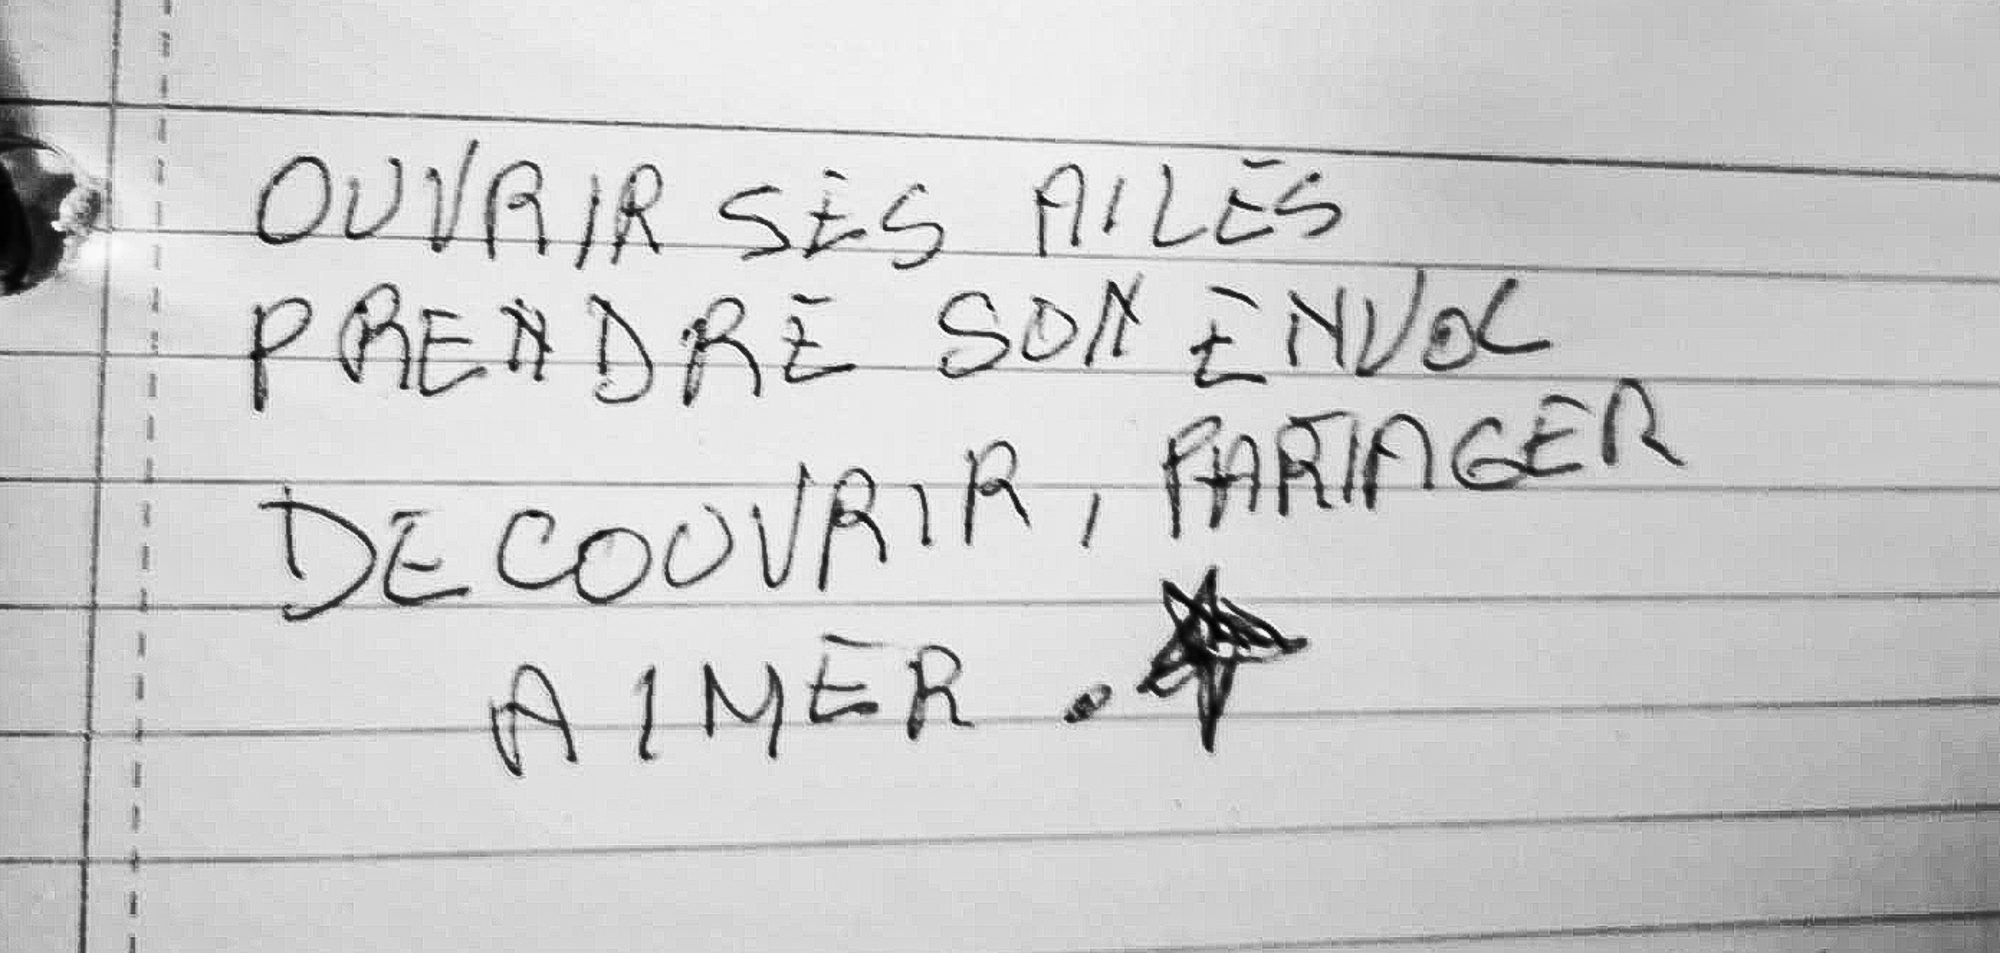 OUVRIR SES AILES
PRENDRE SON ENVOL
DECOUVRIR, PARTAGER
AIMER.